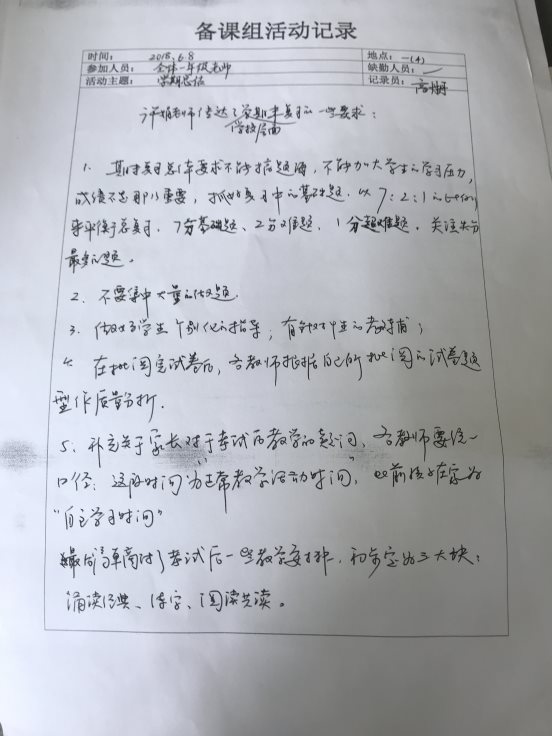 备课组活动记录
时间： 2018.6.8 地点：一(4)
参加人员： 全体一年级老师 缺勤人员：
活动主题： 学期总结 记录员：
老师传达了学期末复习的一些要求：
学校层面
1. 期末复习总体要求不能搞题海，不能加大学生的学习压力，
成绩不是那么重要，抓好复习中的基础题。以7:2:1的
来平衡 复习，7分基础题、2分难题、1分超难题。关注失分
最多的题。
2. 不要集中大量的做题
3. 做好学生个别化的指导，有针对性的 辅；
4. 在批阅完试卷后，各教师根据自己所批阅的试卷题
型作质量分析.
5. 补充关于家长对于考试后教学的疑问，各教师要统一
口径：这段时间为"正常教学活动时间"，以前 在家为
"自主学习时间"
最后简单商讨了考试后一些教学安排，初步定为三大块：
诵读经典、练字、阅读共读。